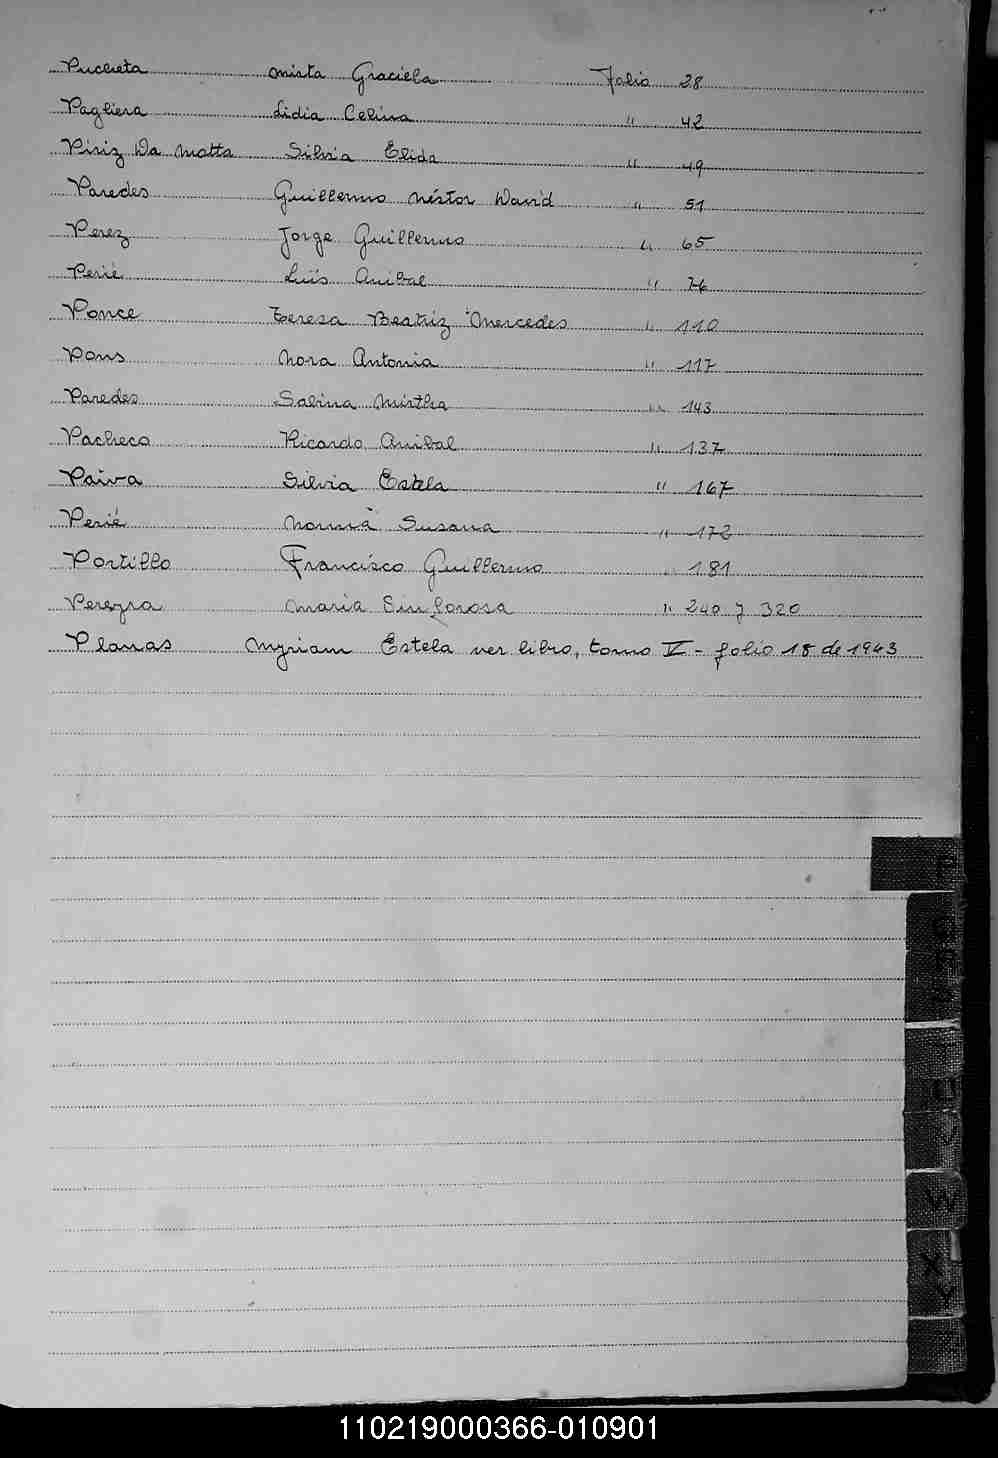 Pucheta Mirta Graciela Folio 28
Pagliera Lidia Celina " 42
Piriz Da Motta Silvia Elida " 49
Paredes Guillermo Néstor David " 51
Perez Jorge Guillermo " 65
Perié Luis Anibal " 76
Ponce Teresa Beatriz Mercedes " 110
Pons Nora Antonia " 117
Paredes Sabina Mirtha " 143
Pacheco Ricardo Anibal " 137
Paiva Silvia Estela " 167
Perié Norma Susana " 172
Portillo Francisco Guillermo " 181
Pereyra Maria Sinforosa " 240 y 320
Planas Myriam Estela ver libro, tomo V - folio 18 de 1943
P
W
X
110219000366-010901